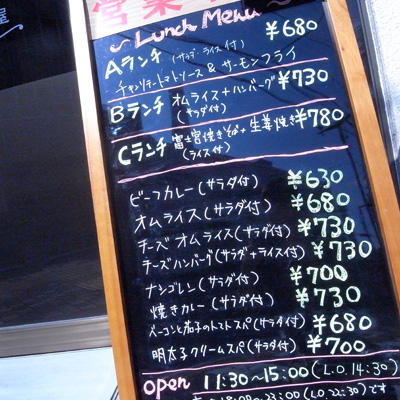 営業
Lunch Menu
Aランチ (サラダ・ライス付) ¥680
チキンソテートマトソース & サーモンフライ
Bランチ オムライス+ハンバーグ ¥730
(サラダ付)
Cランチ 富士宮焼きそば+生姜焼き ¥780
(ライス付)
ビーフカレー(サラダ付) ¥630
オムライス(サラダ付) ¥680
チーズオムライス(サラダ付) ¥730
チーズハンバーグ(サラダ+ライス付) ¥730
ナシゴレン(サラダ付) ¥700
焼きカレー(サラダ付) ¥730
ベーコンと茄子のトマトスパ(サラダ付) ¥680
明太子クリームスパ(サラダ付) ¥700
open 11:30~15:00(L.O.14:30)
18:00~23:00(L.O.22:30)です